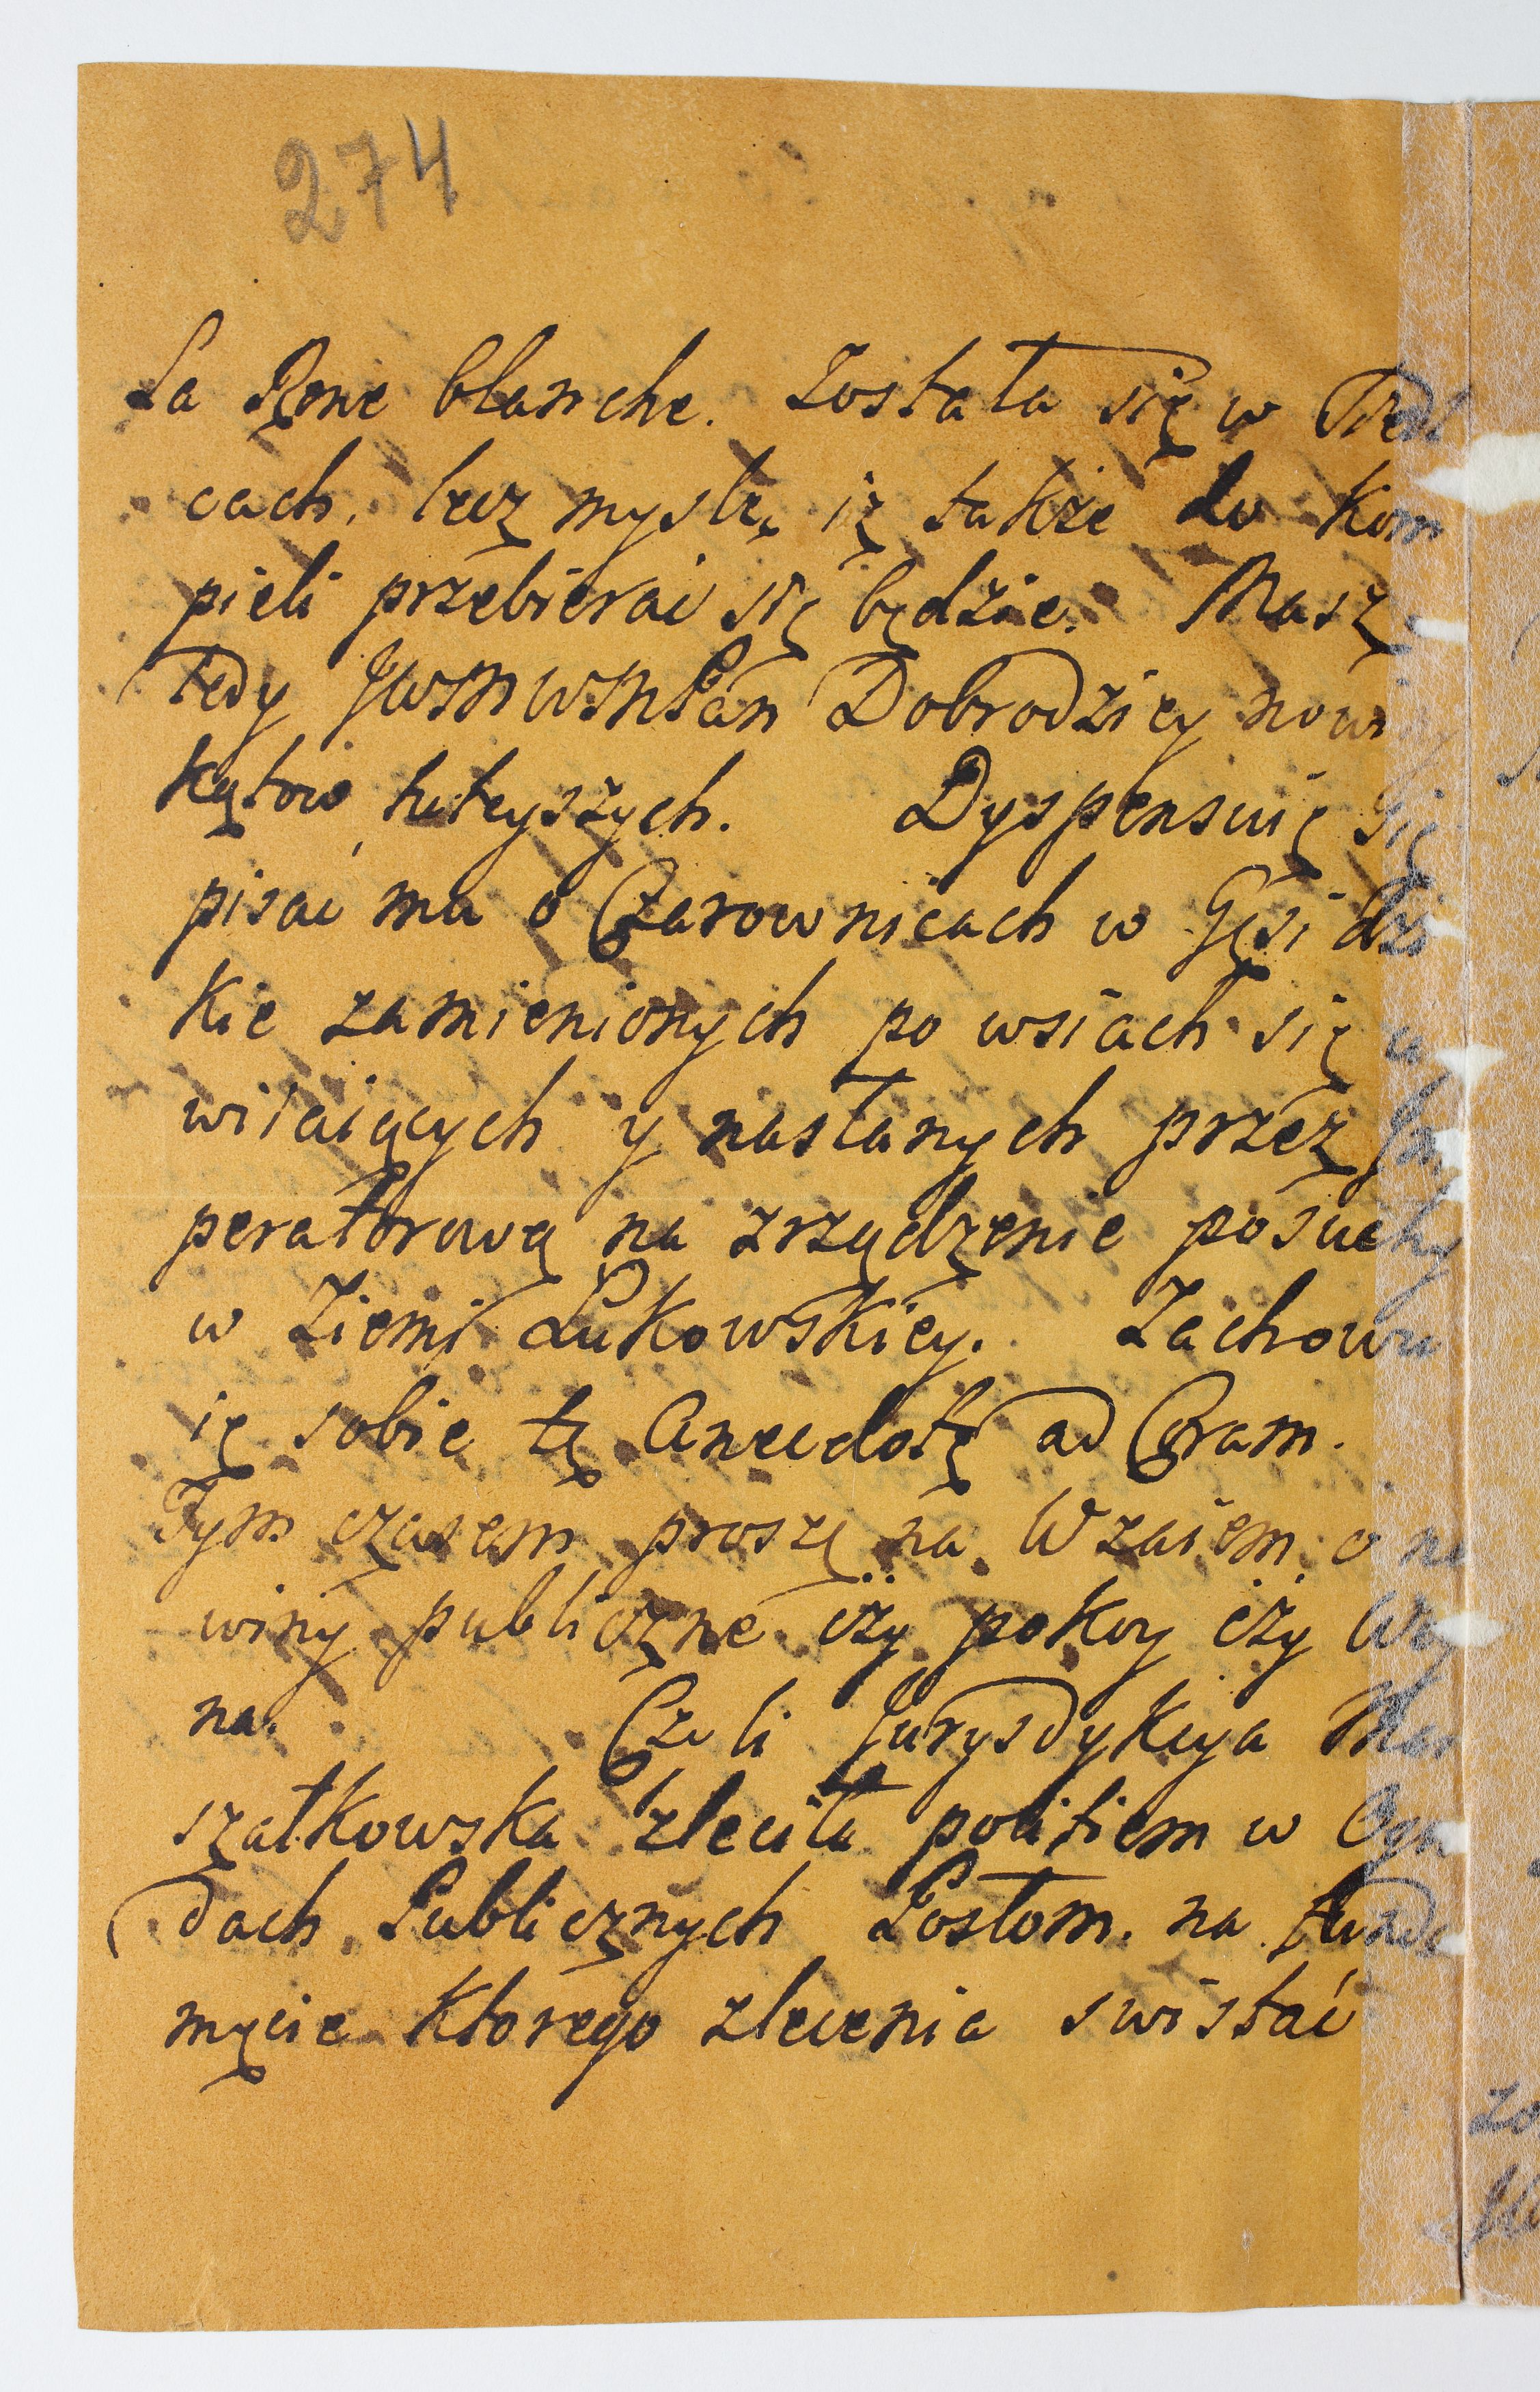 274
La Rene blanche. Została się w Siedl
cach, lecz myślę iż także do Kom
pieli przebierać się będzie. Masz
tedy JWSMWSMPan Dobrodziey now
kątów tuteyszych. Dyspensuię się
pisać mu o Czarownicach w Gęsi dzi
kie zamienionych po wsiach się u
wiiaiących y nasłanych przez Im
peratorową na zrządzenie posuchy
w Ziemi Łukowskiey. Zachowu
ię sobie tę Anecdotę ad Coram.
Tym czasem proszę na Wzaiem o no
winy publiczne czy pokoy czy Woy
na. Czeli Jurysdykcya Mar
szałkowska zleciła politiem w Ogro
dach Publicznych Posłom. na funda
męcie którego zlecenia swistać